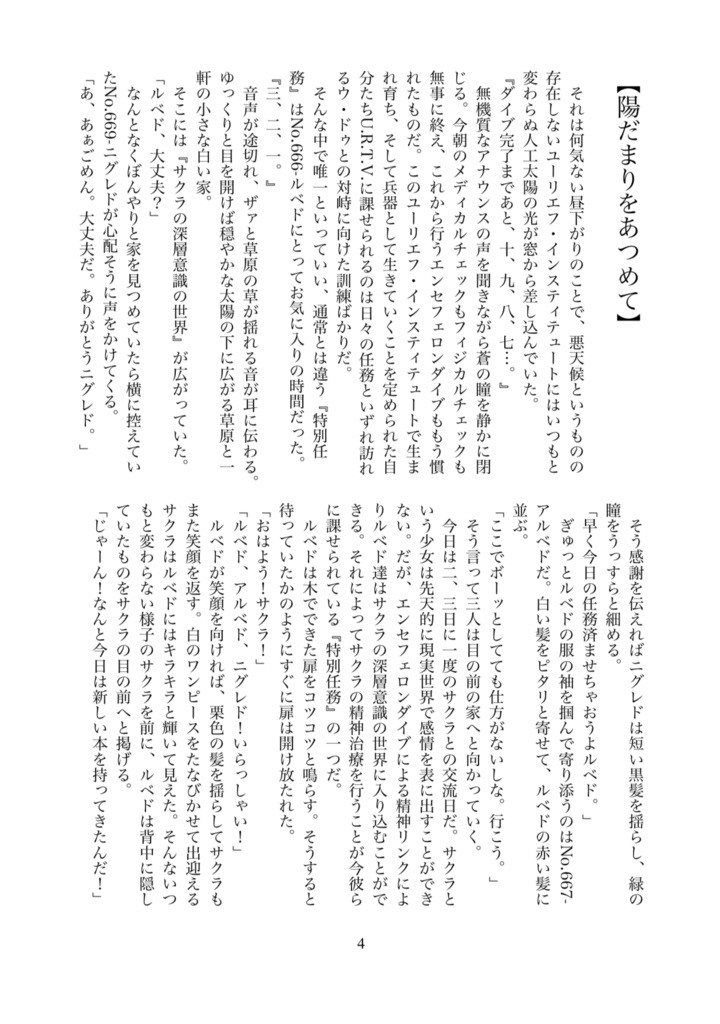 【陽だまりをあつめて】
それは何気ない昼下がりのことで、悪天候というものの
存在しないユーリエフ・インスティテュートにはいつもと
変わらぬ人工太陽の光が窓から差し込んでいた。
『ダイブ完了まであと、十、九、八、七…。』
無機質なアナウンスの声を聞きながら蒼の瞳を静かに閉
じる。今朝のメディカルチェックもフィジカルチェックも
無事に終え、これから行うエンセフェロンダイブももう慣
れたものだ。このユーリエフ・インスティテュートで生ま
れ育ち、そして兵器として生きていくことを定められた自
分たちU.R.T.Vに課せられるのは日々の任務といずれ訪れ
るウ・ドゥとの対峙に向けた訓練ばかりだ。
そんな中で唯一といっていい、通常とは違う『特別任
務』はNo.666-ルベドにとってお気に入りの時間だった。
『三、二、一。』
音声が途切れ、ザァと草原の草が揺れる音が耳に伝わる。
ゆっくりと目を開けば穏やかな太陽の下に広がる草原と一
軒の小さな白い家。
そこには『サクラの深層意識の世界』が広がっていた。
「ルベド、大丈夫？」
なんとなくぼんやりと家を見つめていたら横に控えてい
たNo.669-ニグレドが心配そうに声をかけてくる。
「あ、あぁごめん。大丈夫だ。ありがとうニグレド。」
そう感謝を伝えればニグレドは短い黒髪を揺らし、緑の
瞳をうっすらと細める。
「早く今日の任務済ませちゃおうよルベド。」
ぎゅっとルベドの服の袖を掴んで寄り添うのはNo.667-
アルベドだ。白い髪をピタリと寄せて、ルベドの赤い髪に
並ぶ。
「ここでボーッとしてても仕方がないしな。行こう。」
そう言って三人は目の前の家へと向かっていく。
今日は二、三日に一度のサクラとの交流日だ。サクラと
いう少女は先天的に現実世界で感情を表に出すことができ
ない。だが、エンセフェロンダイブによる精神リンクによ
りルベド達はサクラの深層意識の世界に入り込むことがで
きる。それによってサクラの精神治療を行うことが今彼ら
に課せられている『特別任務』の一つだ。
ルベドは木でできた扉をコツコツと鳴らす。そうすると
待っていたかのようにすぐに扉は開け放たれた。
「おはよう！サクラ！」
「ルベド、アルベド、ニグレド！いらっしゃい！」
ルベドが笑顔を向ければ、栗色の髪を揺らしてサクラも
また笑顔を返す。白のワンピースをたなびかせて出迎える
サクラはルベドにはキラキラと輝いて見えた。そんないつ
もと変わらない様子のサクラを前に、ルベドは背中に隠し
ていたものをサクラの目の前へと掲げる。
「じゃーん！なんと今日は新しい本を持ってきたんだ！」
4